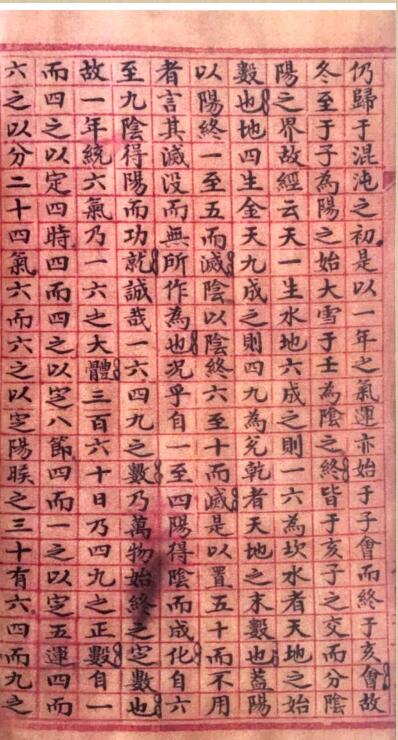 仍歸于混沌之初是以一年之氣運亦始于子會而終于亥會故
冬至于子為陽之始大雪于壬為陰之終皆于亥子之交而分陰
陽之界故經云天一生水地六成之則一六為坎水者天地之始
數也地四生金天九成之則四九為兊乾者天地之末數也葢陽
以陽終一至五而滅陰以陰終六至十而滅是以置五十而不用
者言其滅没而無所作為也况乎自一至四陽得陰而成化自六
至九陰得陽而功就誠哉一六四九之數乃萬物始終之㝎數也
故一年統六氣乃一六之大體三百六十日乃四九之正數自一
而四之以定四時四而四之以㝎八節四而一之以㝎五運四而
六之以分二十四氣六而六之以㝎陽睺之三十有六四而九之